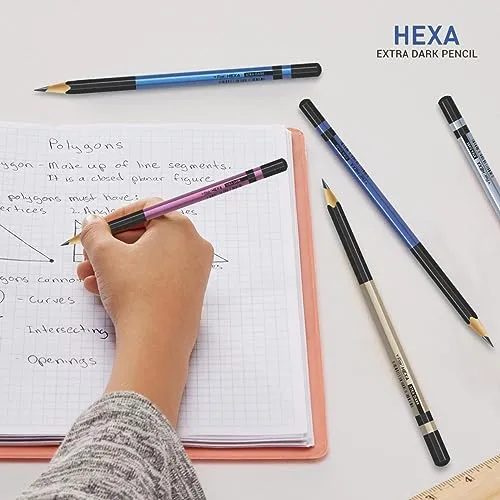 HEXA
EXTRA DARK PENCIL
Polygons
ygon - Made up of line segments.
It is a closed planar figure
polygons must have:
ertices 2. Angle
gons cannot
- Curves
- Intersecting
- Openings
HEXA
4